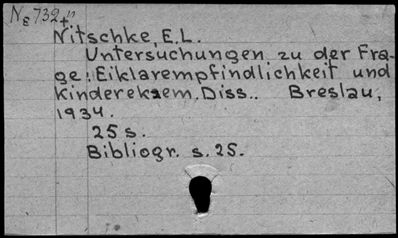 Ng 732
Nitschke, E.L.
Untersuchungen zu der Fra-
ge: Eiklarempfindlichkeit und
Kinderekzem. Diss.. Breslau,
1934.
25 s.
Bibliogr. s. 25.